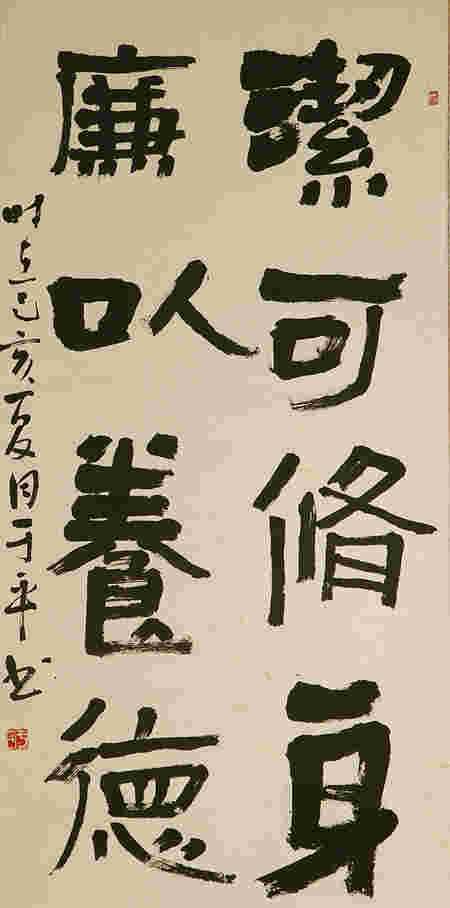 潔可脩身
廉以養德
时在己亥夏月于平书